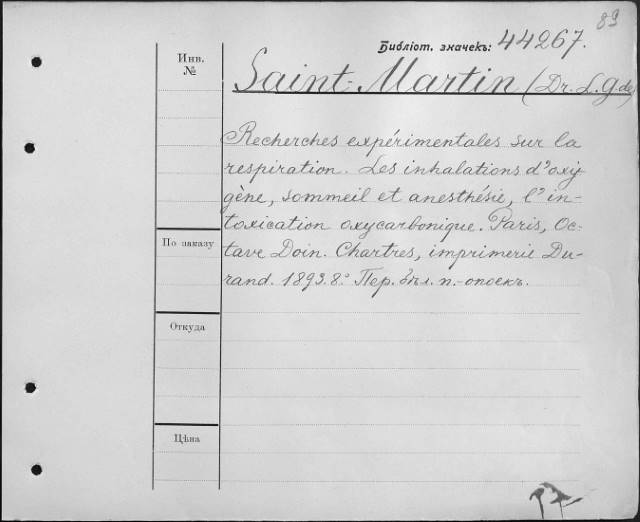 89
Библіот. значекъ: 44267.
Инв.
№
Saint-Martin (Dr. L. G. de)
Recherches expérimentales sur la
respiration. Les inhalations d'oxy-
gène, sommeil et anesthésie, l'in-
toxication oxycarbonique. Paris, Oc-
tave Doin. Chartres, imprimerie Du-
rand. 1893. 8.° Пер. бѣл. п.-опоекъ.
По заказу
Откуда
Цѣна